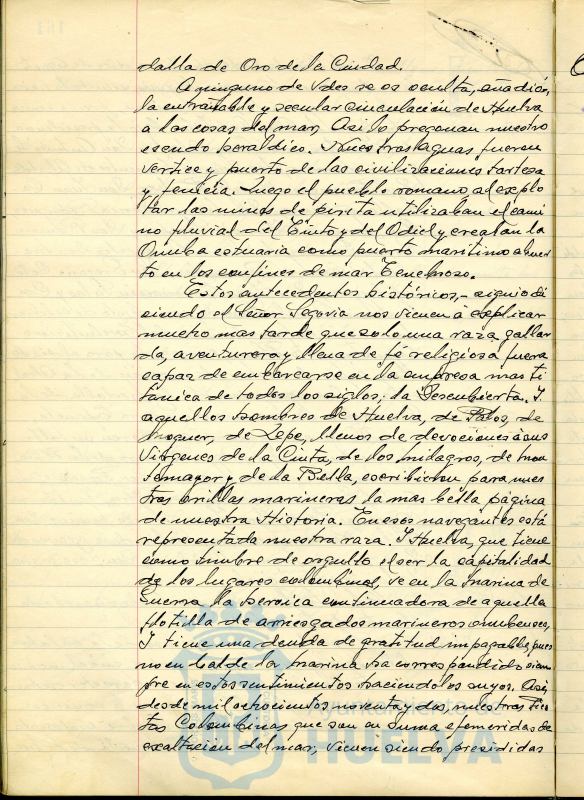 dalla de Oro de la Ciudad.
A ninguno de Vdes se os oculta, añadió,
la entrañable y secular vinculación de Huelva
a las cosas del mar, Asi lo pregonan nuestro
escudo heraldico. Nuestras aguas fueron
vertice y puerto de las civilizaciones tartesa
y fenicia. Luego el pueblo romano, al explo
tar las minas de pirita utilizaban el cami
no fluvial del Tinto y del Odiel y creaban la
Onuba estuaria como puerto maritimo abier
to en los confines de mar Tenebroso.
Estos antecedentes históricos,- siguio di
ciendo el Señor Segovia nos vienen à explicar
mucho mas tarde que solo una raza gallar
da, aventurera y llena de fé religiosa fuera
capaz de embarcarse en la empresa mas ti
tánica de todos los siglos; la Descubierta. Y
aquellos hombres de Huelva, de Palos, de
Moguer, de Lepe, llenos de devociones à sus
Virgenes de la Cinta, de los milagros, de Mon
temayor y de la Bella, escribieron para nues
tras orillas marineras la mas bella pagina
de nuestra Historia. En esos navegantes está
representada nuestra raza. Y Huelva, que tiene
como timbre de orgullo el ser la capitalidad
de los lugares colombinos, ve en la Marina de
Guerra la heroica continuadora de aquella
flotilla de arriesgados marineros onubenses,
Y tiene una deuda de gratitud impagable, pues
no en balde la Marina ha correspondido siem
pre en estos sentimientos haciendolos suyos. Asi,
desde mil ochocientos noventa y dos, nuestras Fies
tas Colombinas que son en suma efemerides de
exaltación del mar, vienen siendo presididas
HUELVA